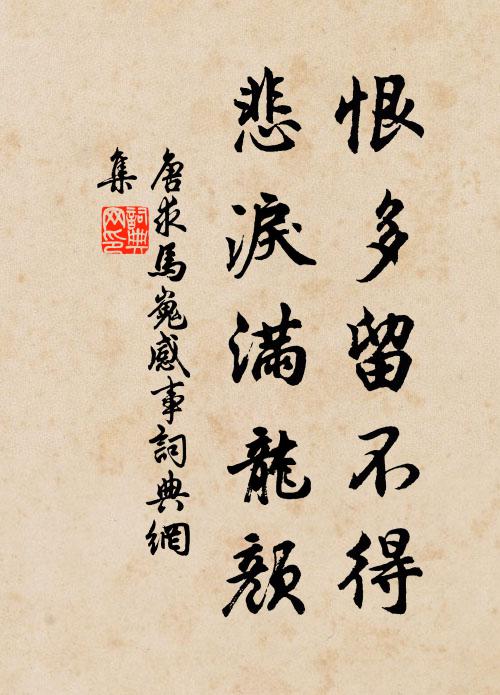 恨多留不得
悲淚滿龍顏
唐求馬嵬感事詞典網
集
詞典
网印